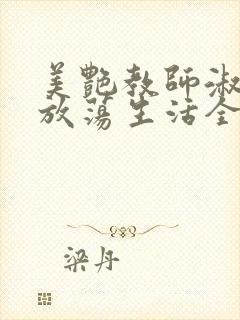 美艷教師淑
放蕩生活全
梁丹